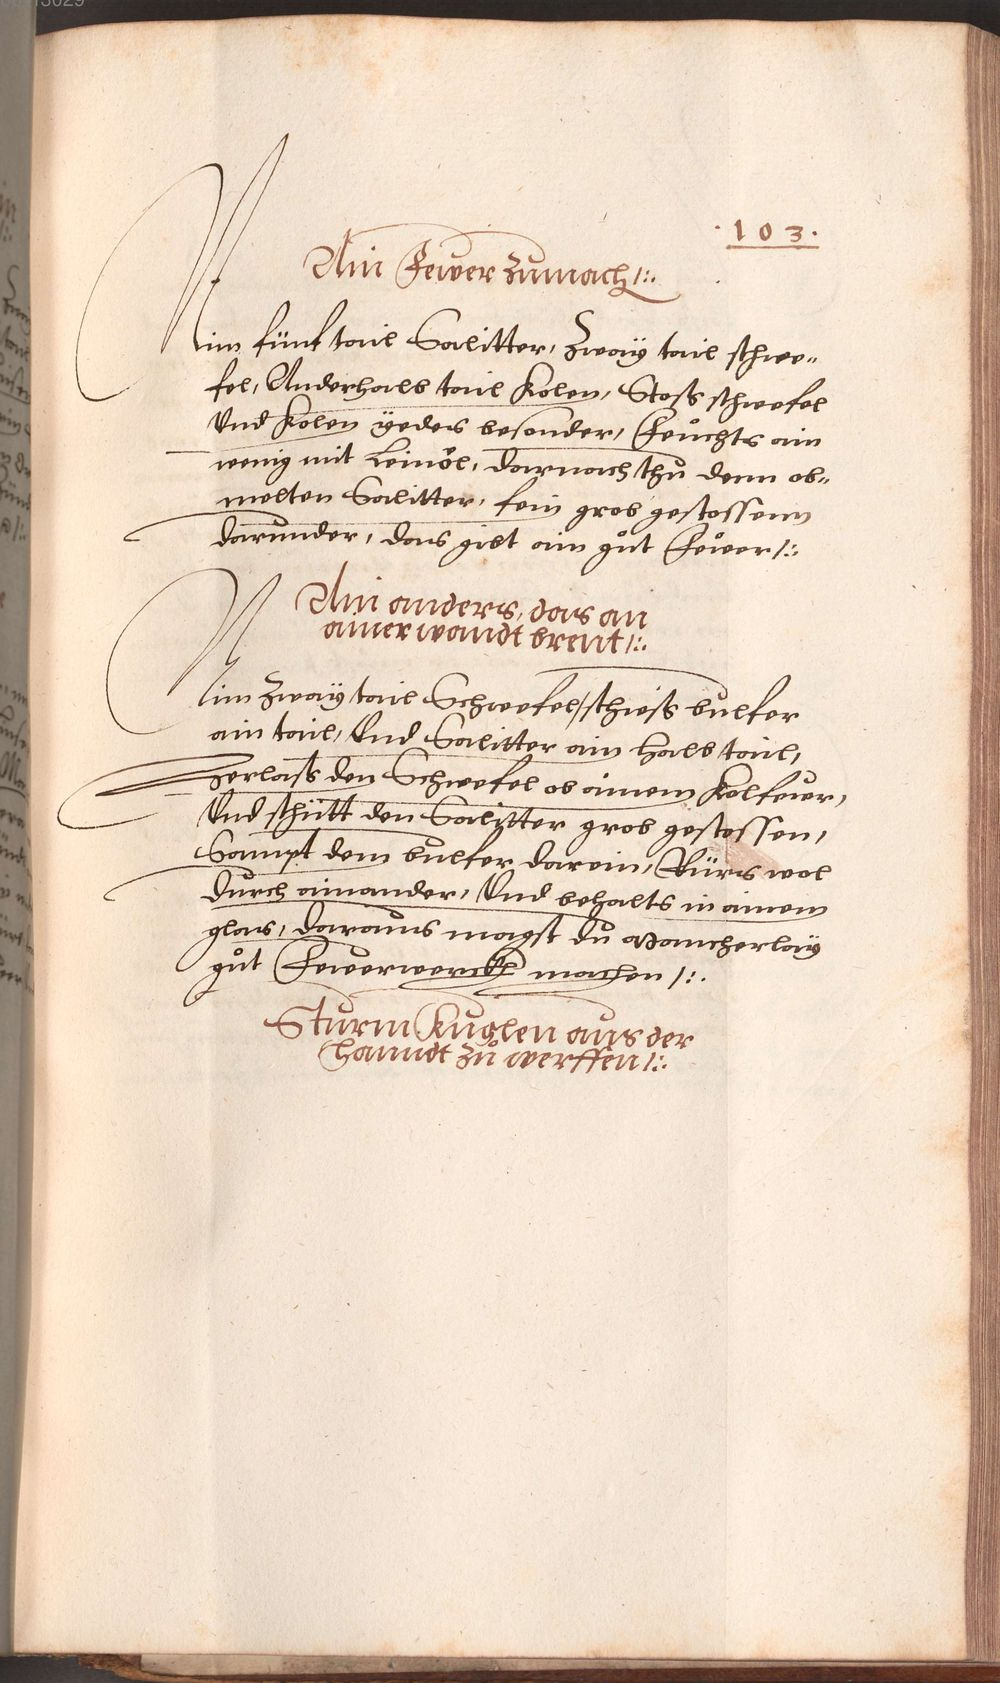 ·103·
Ain Fewer zumach/:.
Nim fünf tail Salitter, Zway tail schwe„
fel, Anderhalb tail Kolen, Stoß schwefel
Vnd Kolen yedes besonder, Feuchts ain
wenig mit Leinöl, darnach thů denn ob„
melten Salitter, fein grob gestossenn
darunder, das gibt ain gůt Feẅer/:.
Ain anders, das an
ainer wandt brent/:.
Nim Zway tail Schwefel, schieß bulfer
ain tail, Vnd Salitter ain halb tail,
Zerlaß den Schwefel ob ainem Kolfeur,
Vnd schütt den Salitter grob gestossen,
Sampt dem bulfer darein, Rürs wol
durch ainander, Vnd behalts in ainem
glas, daraus magst du mancherlay
gůt Fewerwerckh machen/:.
Sturm Kuglen aus der
hanndt zů werffen/:.